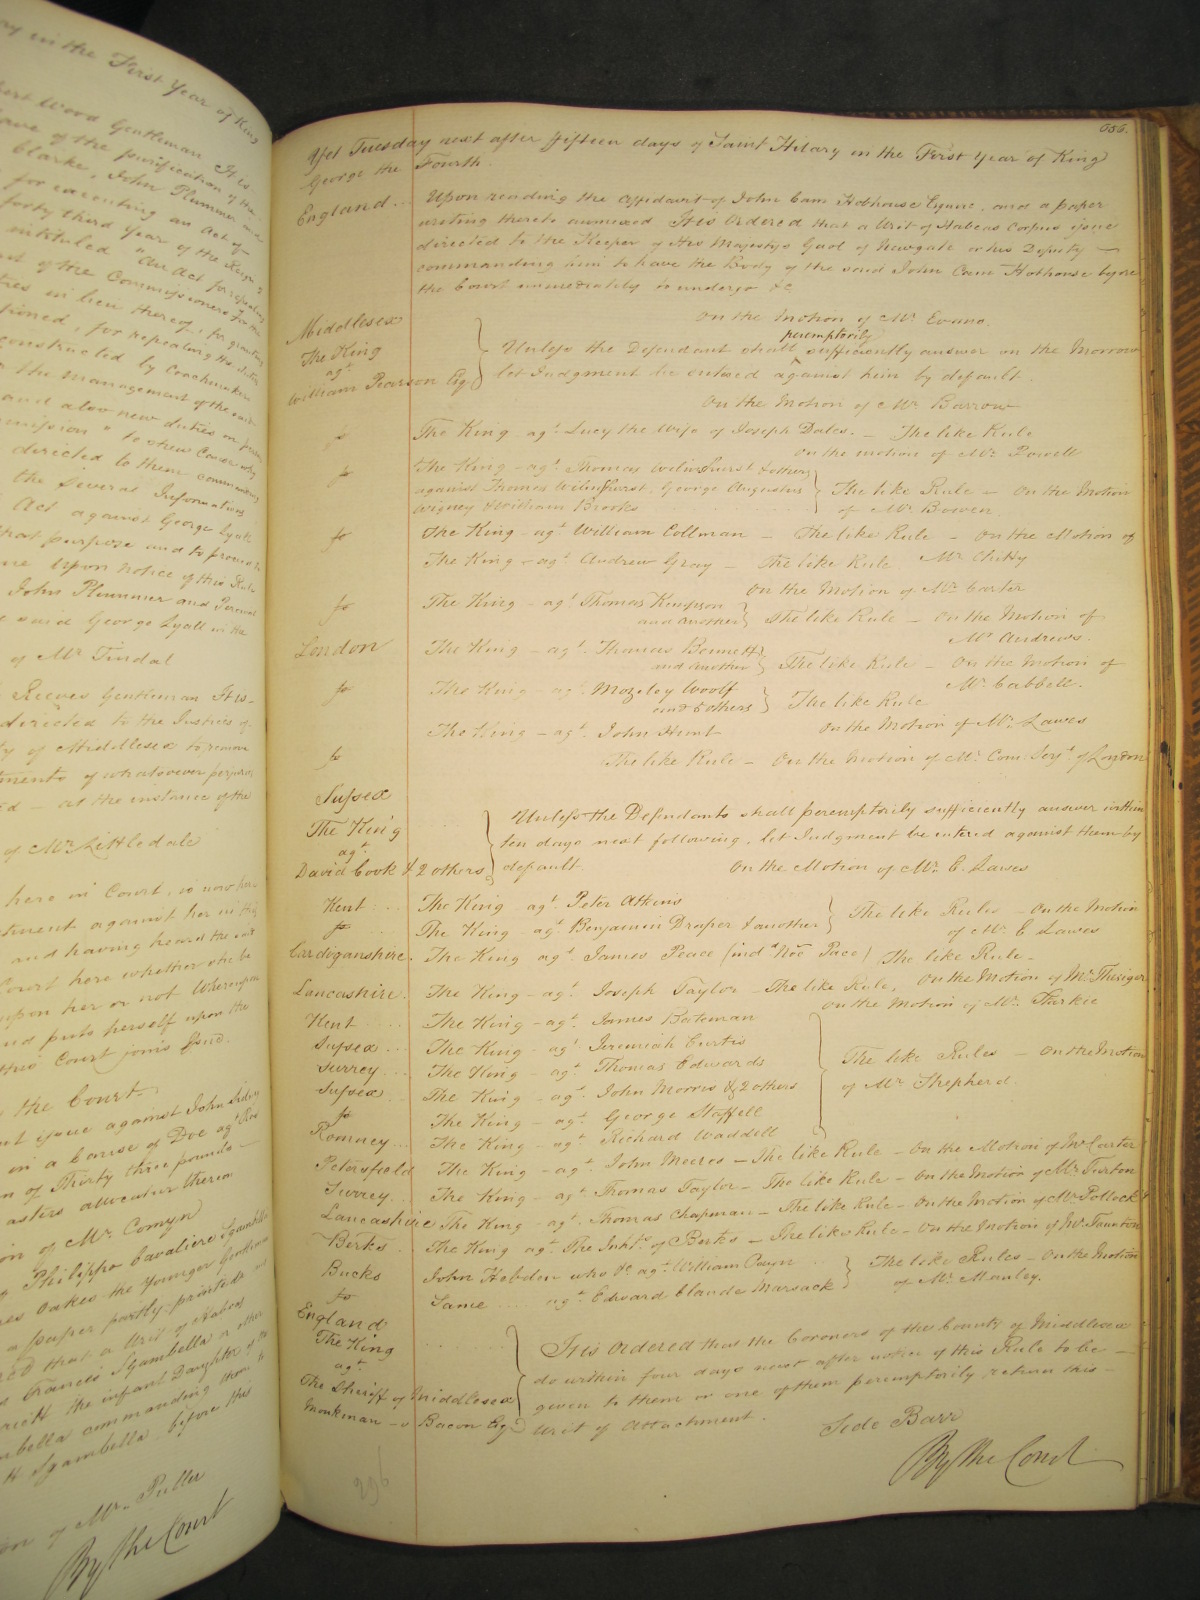 ay in the First Year of King
bert Wood Gentleman It is
of the purification of the
Clarke, John Plummer and
for executing an Act of
forty third Year of the Reign of
intituled "An Act for repealing
of the Commissioners for the
in lieu thereof, for granting
for repealing the duties
constructed by Coachmakers
the management of the said
and also new duties on
to shew Cause why
directed to them commanding
the several Informations
Act against George Lyall
that purpose and to proceed
upon notice of this Rule
John Plummer and
said George Lyall in the
of Mr. Tindal
Reeves Gentleman It is
directed to the Justices of
of Middlesex to remove
of whatsoever
at the instance of the
of Mr. Littledale
here in Court, is now
against her in this
and having heard the said
Court here whether she be
upon her or not Whereupon
and puts herself upon the
this Court joins Issue.
the Court.
issue against John
in a Cause of Doe agt. Roe
of Thirty three pounds
allocatur thereon
of Mr. Comyn
Philippo Cavaliere Sgambella
Oakes the Younger Gentleman
a paper partly printed and
that a Writ of Habeas
Francis Sgambella or other
the infant Daughter of the
commanding them to
Sgambella before this
of Mr. Puller
By the Court
686.
Yet Tuesday next after fifteen days of Saint Hilary in the First Year of King
George the Fourth.
England... Upon reading the Affidavit of John Cam Hobhouse Esquire, and a paper
writing thereto annexed It is Ordered that a Writ of Habeas Corpus issue
directed to the Keeper of His Majestys Gaol of Newgate or his Deputy —
commanding him to have the Body of the said John Cam Hobhouse before
the Court immediately to undergo &c
On the Motion of Mr. Evans.
Middlesex
The King
agt.
William Pearson Esq.
Unless the Defendant shall peremptorily sufficiently answer on the Morrow
let Judgment be entered against him by default.
On the Motion of Mr. Barrow
fo The King - agt. Lucy the Wife of Joseph Dales. — The like Rule
On the motion of Mr. Powell
fo The King - agt. Thomas Wilmshurst & others
against Thomas Wilmshurst, George Augustus
Wigney & William Brooks
The like Rule — On the Motion
of Mr. Bowen.
fo The King - agt. William Collman — The like Rule — On the Motion of
Mr Chitty
The King - agt. Andrew Gray — The like Rule.
On the Motion of Mr. Carter
fo The King - agt. Thomas Kempson
and another
The like Rule — On the Motion of
Mr. Andrews.
London The King - agt. Thomas Bennett
and another
The like Rule — On the Motion of
Mr. Cabbell.
fo The King - agt. Mozeley Woolf
and 5 others
The like Rule
On the Motion of Mr. Lawes
The King - agt. John Hunt
fo The like Rule — On the Motion of Mr. Com. Serjt. of London
Sussex
The King
agt.
David Cook & 2 others
Unless the Defendants shall peremptorily sufficiently answer within
ten days next following, let Judgment be entered against them by
default. On the Motion of Mr. E. Lawes
Kent... The King agt. Peter Atkins
fo The King - agt. Benjamin Draper & another
The like Rules — On the Motion
of Mr. E Lawes
Cardiganshire. The King agt. James Peace (indd. Noē Pace) The like Rule —
On the Motion of Mr. Thesiger
Lancashire. The King - agt. Joseph Taylor — The like Rule,
On the Motion of Mr. Starkie
Kent... The King - agt. James Bateman
Sussex... The King - agt. Jeremiah Curtis
Surrey... The King - agt. Thomas Edwards
Sussex... The King - agt. John Morris & 2 others
fo The King - agt. George Staffell
Romney... The King - agt. Richard Waddell
The like Rules — On the Motion
of Mr. Shepherd.
Petersfield The King - agt. John Meeres — The like Rule — On the Motion of Mr. Carter
Surrey.. The King - agt. Thomas Taylor — The like Rule — On the Motion of Mr. Turton
Lancashire The King - agt. Thomas Chapman — The like Rule — On the Motion of Mr. Pollock
Berks. The King agt. The Inhts. of Berks — The like Rule — On the Motion of Mr. Taunton
Bucks John Hebden who &c agt. William Cayn
fo Same ... agt. Edward Claude Marsack
The like Rules — On the Motion
of Mr. Manley.
England
The King
agt.
The Sheriff of Middlesex
Monkman - v Bacon Esq.
It is Ordered that the Coroners of the County of Middlesex
do within four days next after notice of this Rule to be —
given to them or one of them peremptorily return this —
Writ of Attachment. Side Barr
By the Court
296